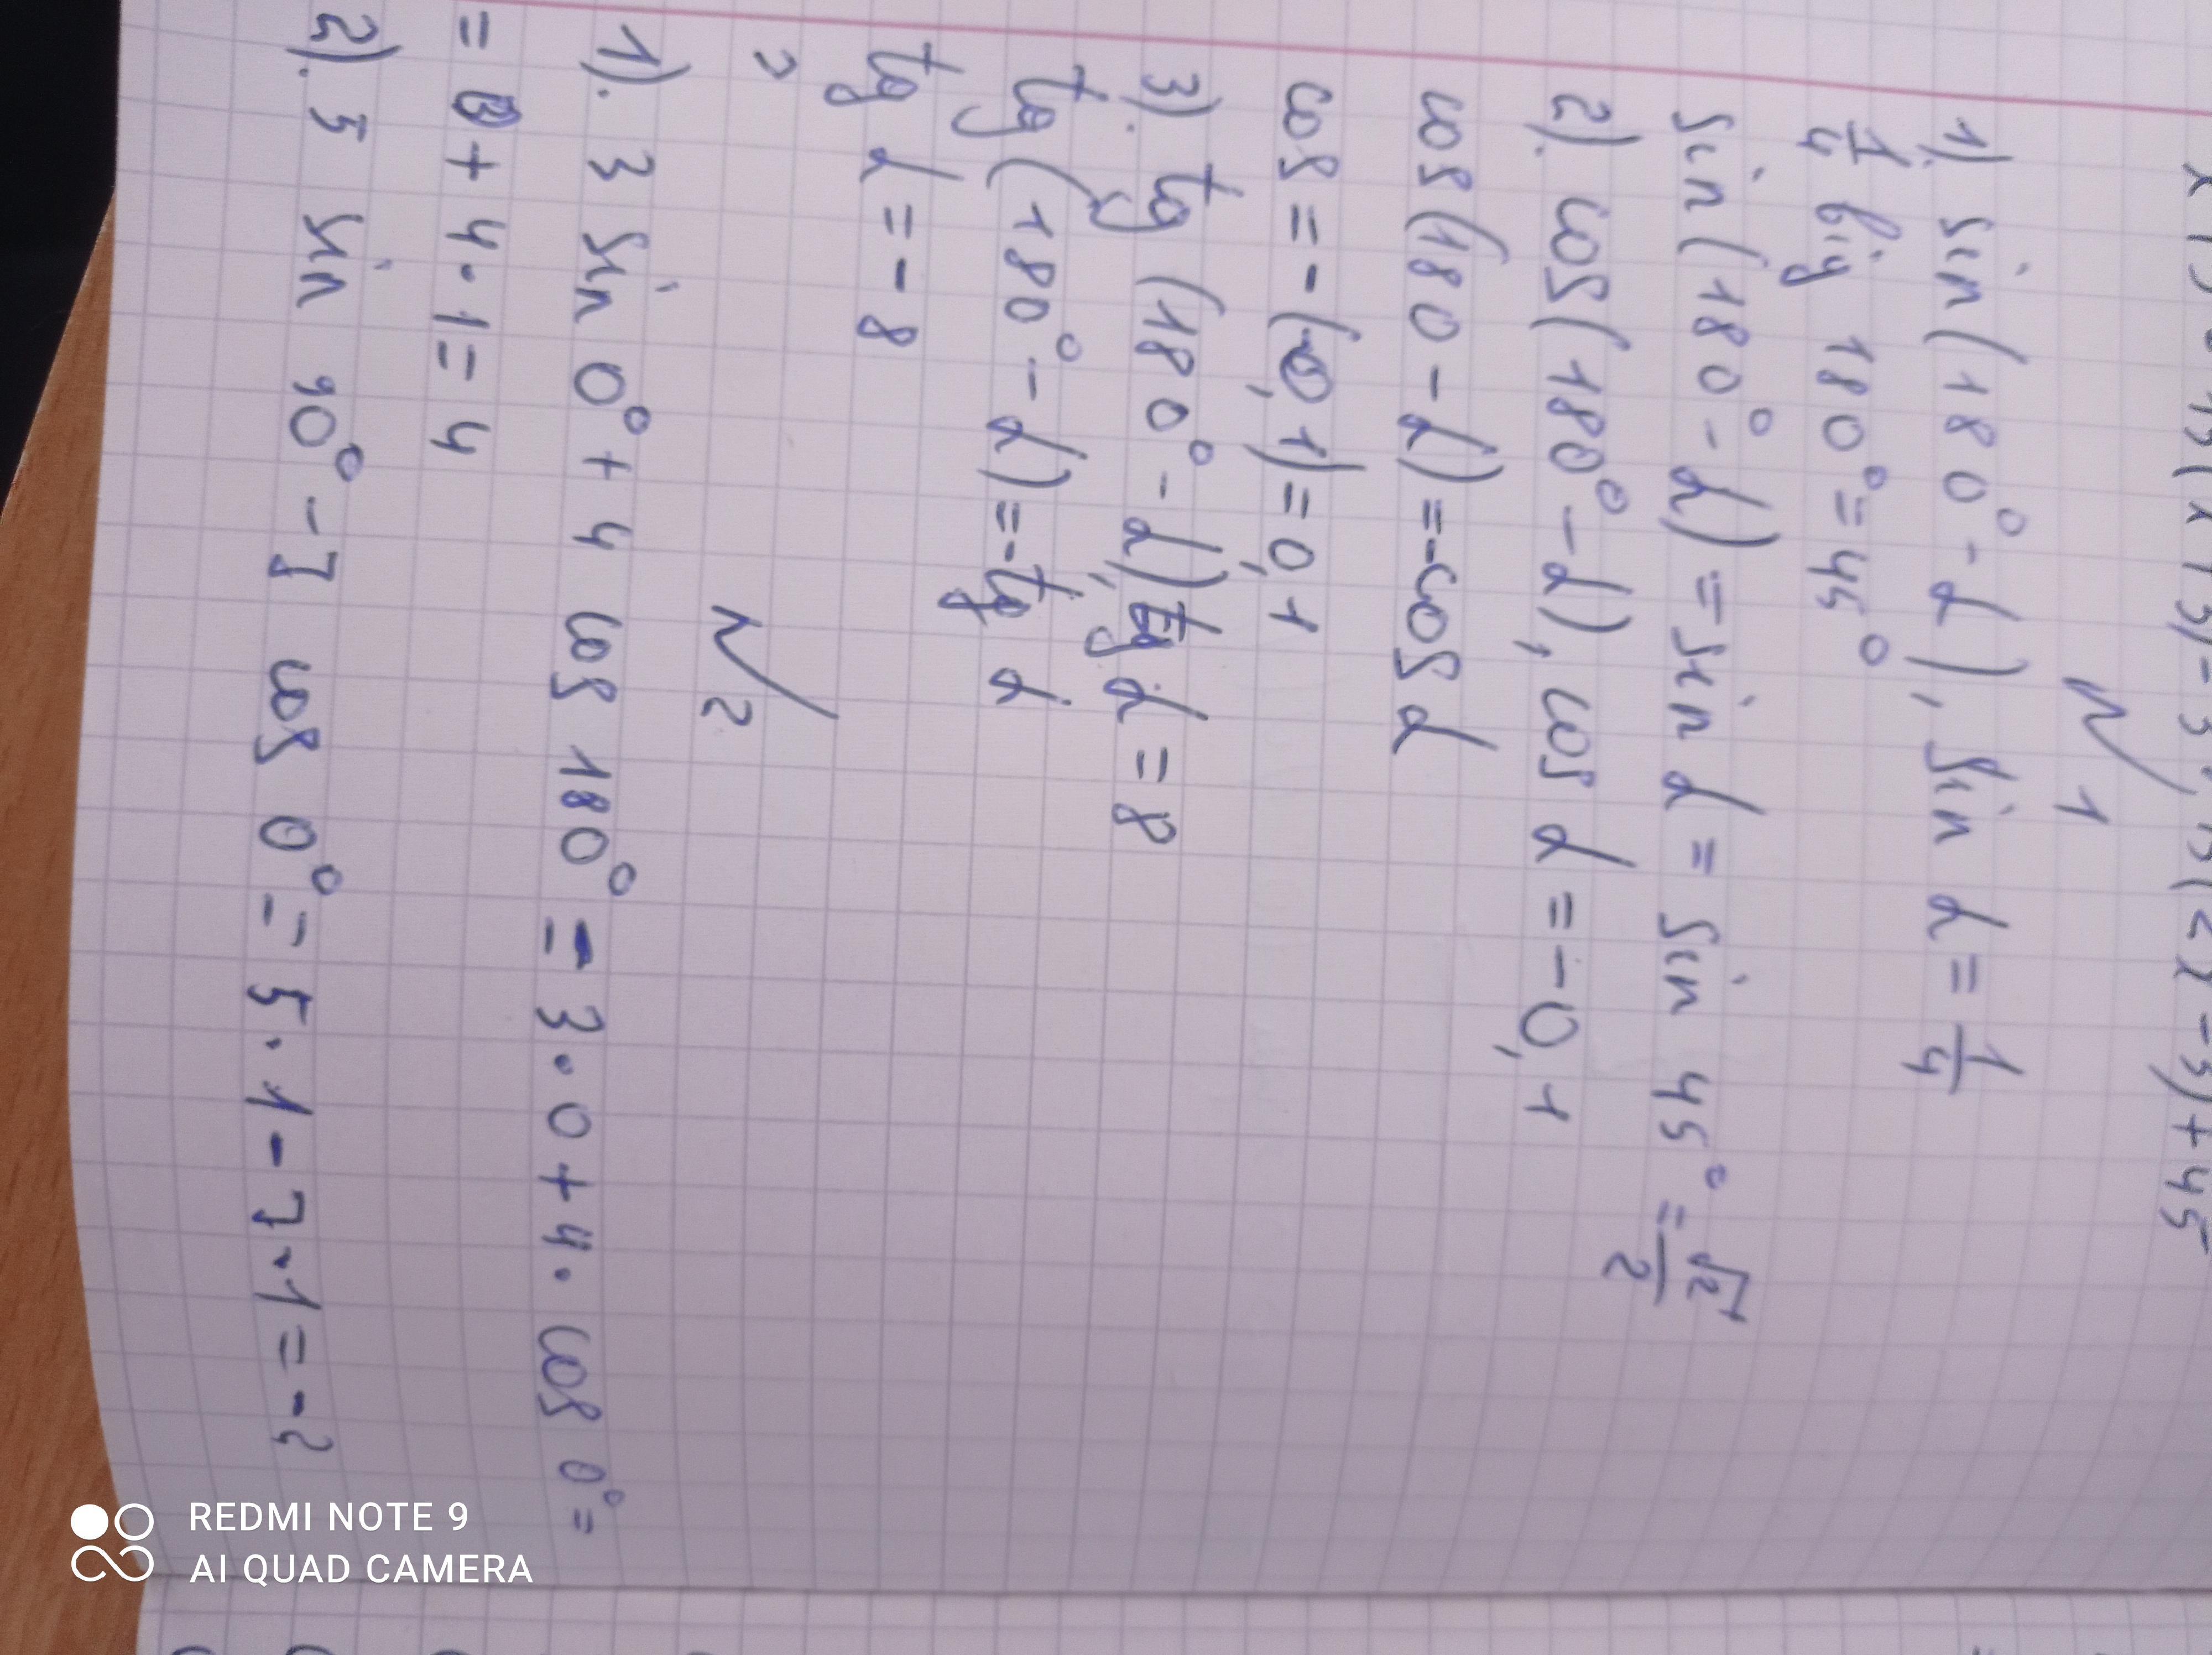 №1
1). sin(180° - α), sin α = 1/4
1/4 від 180° = 45°
sin(180° - α) = sin α = sin 45° = √2/2
2). cos(180° - α), cos α = -0,1
cos(180 - α) = -cos α
cos = -(-0,1) = 0,1
3). tg (180° - α), tg α = 8
tg(180° - α) = -tg α
tg α = -8
№2
1). 3 sin 0° + 4 cos 180° = 3·0 + 4·cos 0° =
= 0 + 4·1 = 4
2). 5 sin 90° - 7 cos 0° = 5·1 - 7·1 = -2
REDMI NOTE 9
AI QUAD CAMERA